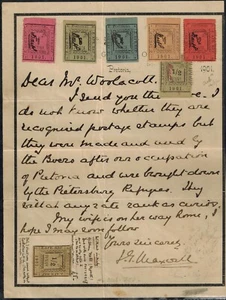 1901.
1901.
1901.
1901.
1901.
Pretoria
Dear Mr. Woolacott.
I send you the
1901.
I do
not know whether they are
recognised postage stamps but
they were made and used by
the Boers after our occupation
of Pretoria and were brought down
by the Pietersburg Refugees. They
will at any rate rank as curios.
My wife is on her way home, &
hope I may soon follow
Yours sincerely